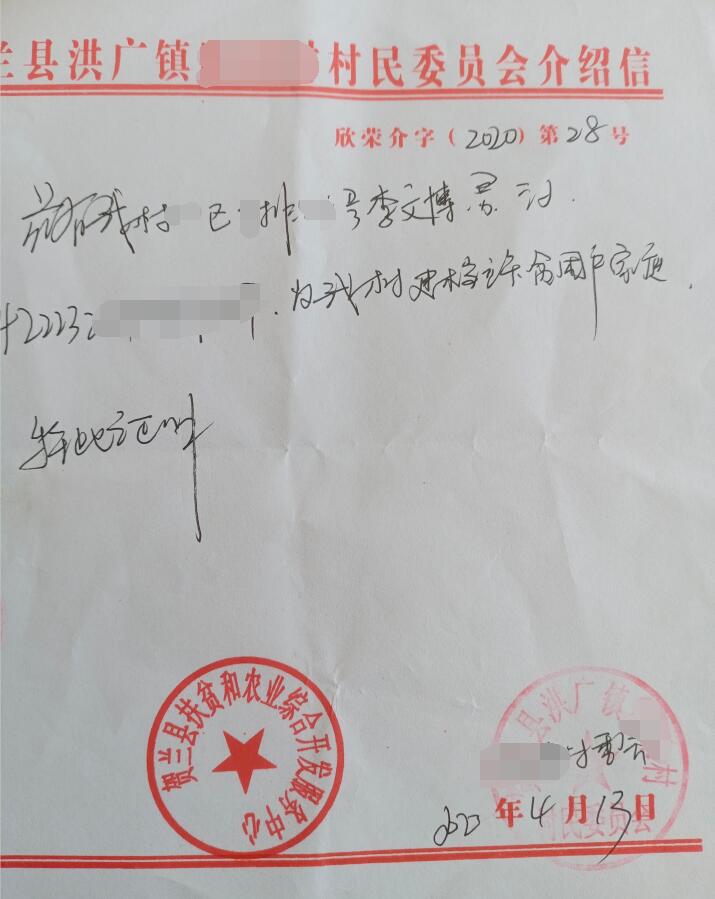 兰县洪广镇 村民委员会介绍信
欣荣介字(2020)第28号
兹有我村 已 排 号李文博
42223 为我村建档立卡贫困户家庭.
特此证明
贺兰县扶贫和农业综合开发服务中心
县洪广镇 村
村民委员会
2020年4月13日